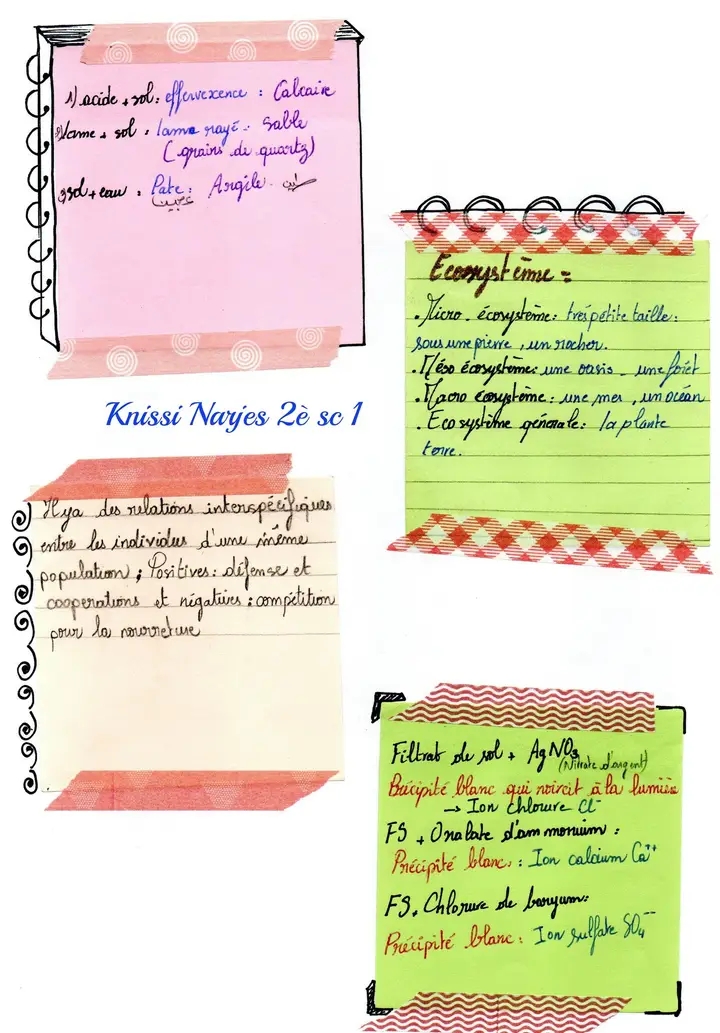 1) acide + sol : effervexence : Calcaire
2) lame + sol : lame rayé : Sable
(grains de quartz)
3) sol + eau : Pate : Argile طين
عجين
Ecosystème =
. Micro . écosystème : très pétite taille :
sous une pierre , un rocher .
. Méso écosystème : une oasis _ une forêt
. Macro écosystème : une mer , un océan
. Eco système génerale : la plante
terre .
Knissi Narjes 2è sc 1
Il ya des relations interspécifiques
entre les individus d'une même
population ; Positives : défense et
cooperations et négatives : compétition
pour la nourreture
Filtrat de sol + AgNO3
(Nitrate d'argent)
Précipité blanc qui noircit à la lumière
→ Ion chlorure Cl-
FS + Oxalate d'ammonium :
Précipité blanc : Ion calcium Ca++
FS + Chlorure de baryum :
Précipité blanc : Ion sulfate SO4--